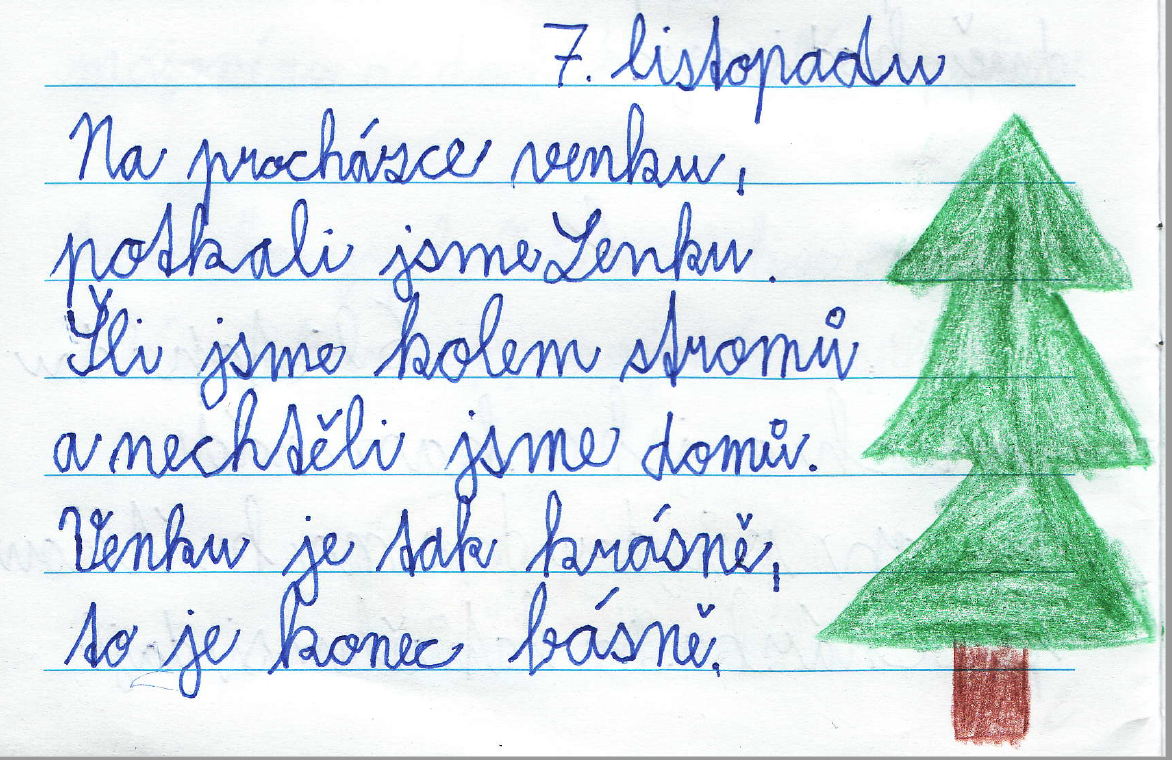 7. listopadu
Na procházce venku,
potkali jsme Lenku.
Šli jsme kolem stromů
a nechtěli jsme domů.
Venku je tak krásně,
to je konec básně.